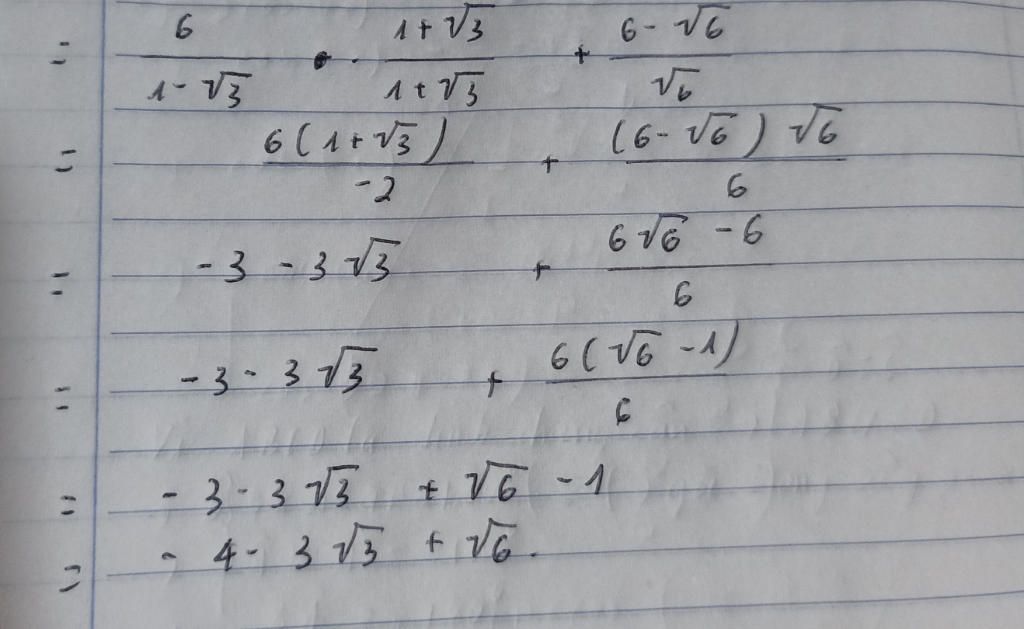 = 6/(1-√3) · (1+√3)/(1+√3) + (6-√6)/√6
= 6(1+√3)/-2 + (6-√6)√6/6
= -3 -3√3 + (6√6 -6)/6
= -3 - 3√3 + 6(√6 -1)/6
= -3 - 3√3 + √6 -1
= -4 - 3√3 + √6.